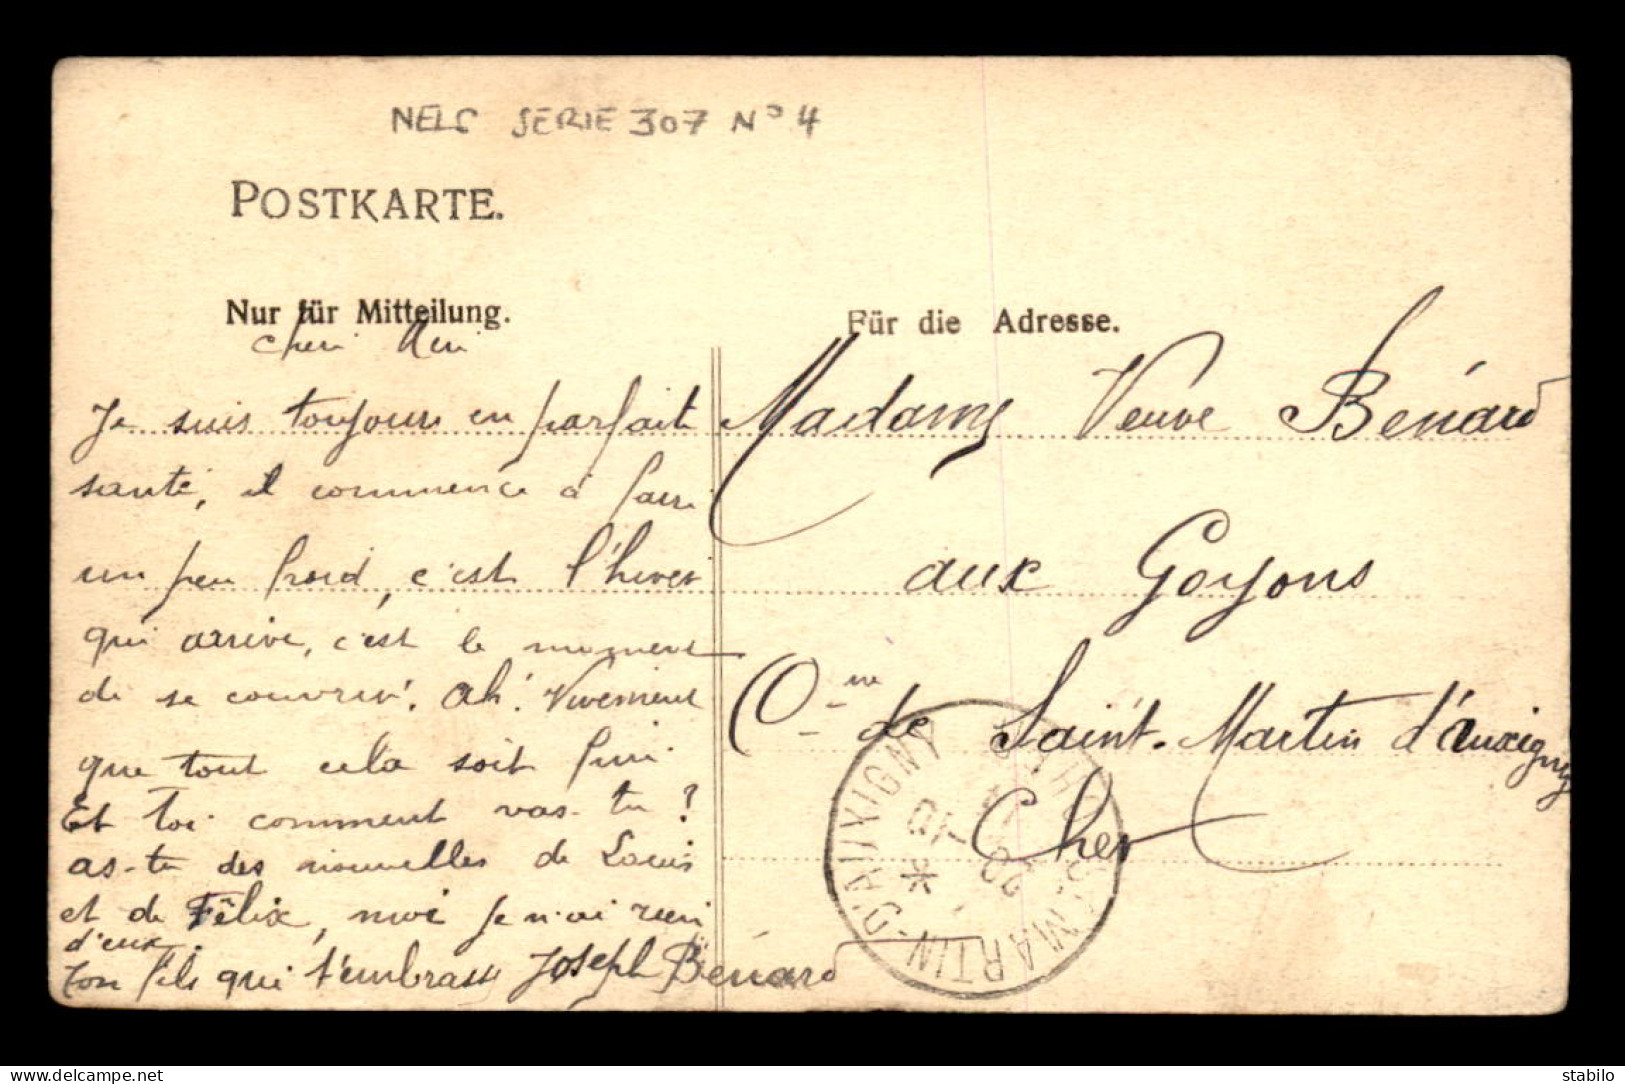 NELS SERIE 307 N° 4
POSTKARTE.
Nur für Mitteilung.
Für die Adresse.
Je suis toujours en parfait
santé, il commence à faire
un peu froid, c'est l'hiver
qui arrive, c'est le moment
de se couvrir! Ah! Vivement
que tout cela soit fini
Et toi comment vas-tu?
as-tu des nouvelles de Louis
et de Félix, moi je n'ai rien
d'eux.
ton fils qui t'embrasse Joseph Bénard
Madame Veuve Bénard
aux Goyons
Cne de Saint-Martin d'Auxigny
Cher
ST MARTIN-D'AUXIGNY
CHER